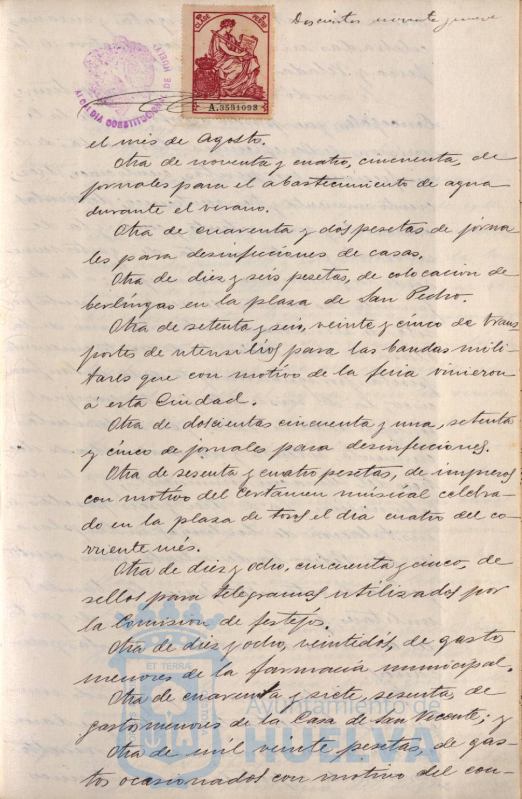 Doscientos noventa y nueve
ALCALDIA CONSTITUCIONAL DE HUELVA
CLASE
PESETA
A.3591093
el mes de Agosto.
Otra de noventa y cuatro, cincuenta, de
jornales para el abastecimiento de agua
durante el verano.
Otra de cuarenta y dós pesetas de jorna-
les para desinfecciones de casas.
Otra de diez y seis pesetas, de colocacion de
berlingas en la plaza de San Pedro.
Otra de setenta y seis, veinte y cinco de trans
portes de utensilios para las bandas mili-
tares que con motivo de la feria vinieron
á esta Ciudad.
Otra de doscientas cincuenta y una, setenta
y cinco de jornales para desinfecciones.
Otra de sesenta y cuatro pesetas, de impresos
con motivo del Certamen musical celebra-
do en la plaza de toros el dia cuatro del co-
rriente més.
Otra de diez y ocho, cincuenta y cinco, de
sellos para telegramas utilizados por
la Comision de festejos.
Otra de diez y ocho, veintidós, de gastos
menores de la farmacia municipal.
Otra de cuarenta y siete, sesenta, de
gastos menores de la Casa de San Vicente; y
Otra de mil veinte pesetas, de gas-
tos ocasionados con motivo del con-
ET TERRÆ
Ayuntamiento de
HUELVA